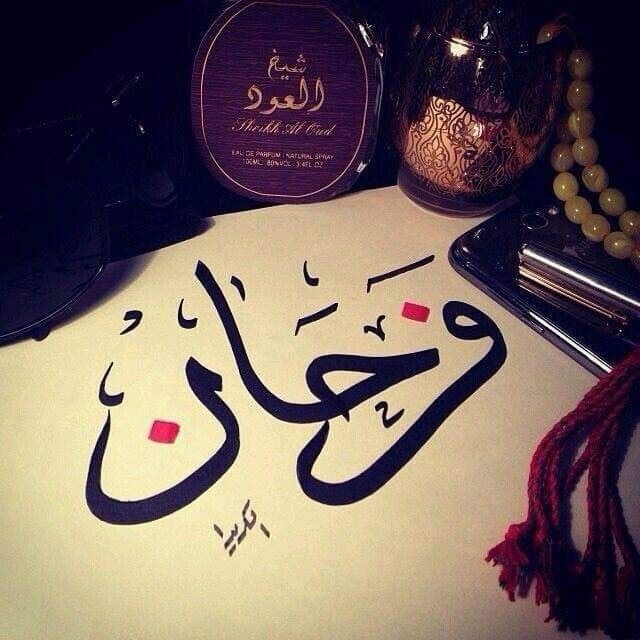 شيخ
العود
Sheikh Al Oud
EAU DE PARFUM / NATURAL SPRAY
100ML. 80%VOL. 3.4FL.OZ
فَرحَان